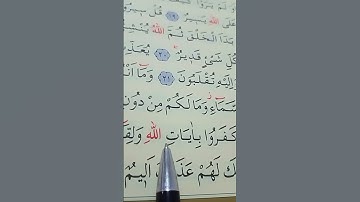 عَلَى اللّٰهِ يَسٖيرٌ ﴿١٩﴾ قُلْ سٖيرُوا
بَدَاَ الْخَلْقَ ثُمَّ اللّٰهُ يُنْشِئُ
كُلِّ شَيْءٍ قَدٖيرٌ ﴿٢٠﴾ يُعَذِّبُ
وَاِلَيْهِ تُقْلَبُونَ ﴿٢١﴾ وَمَٓا اَنْتُمْ
السَّمَٓاءِ وَمَا لَكُمْ مِنْ دُونِ
كَفَرُوا بِاٰيَاتِ اللّٰهِ وَلِقَٓا
لَهُمْ عَذَابٌ اَلٖيمٌ